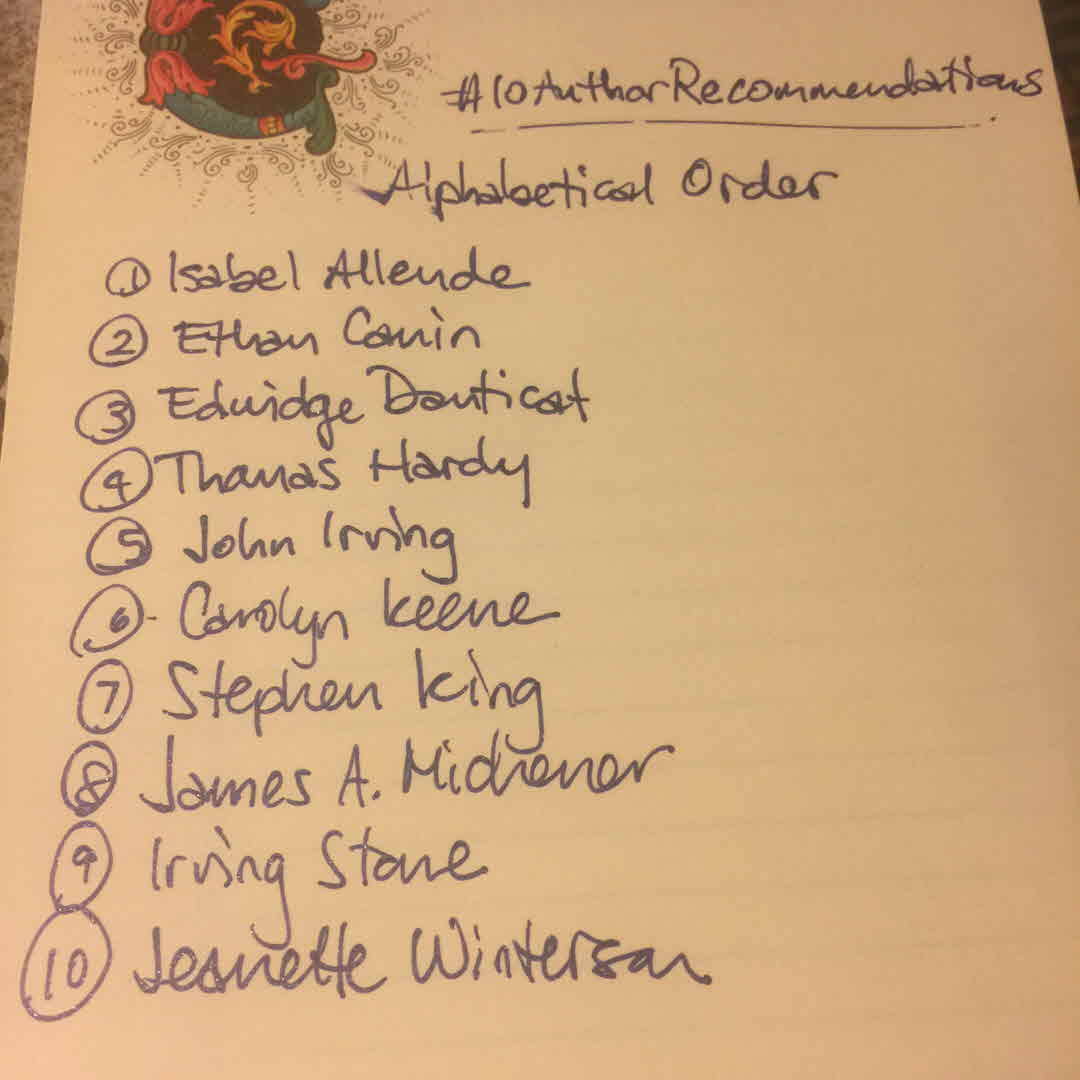 #10AuthorRecommendations
Alphabetical Order
1 Isabel Allende
2 Ethan Canin
3 Edwidge Danticat
4 Thomas Hardy
5 John Irving
6- Carolyn Keene
7 Stephen King
8 James A. Michener
9 Irving Stone
10 Jeanette Winterson